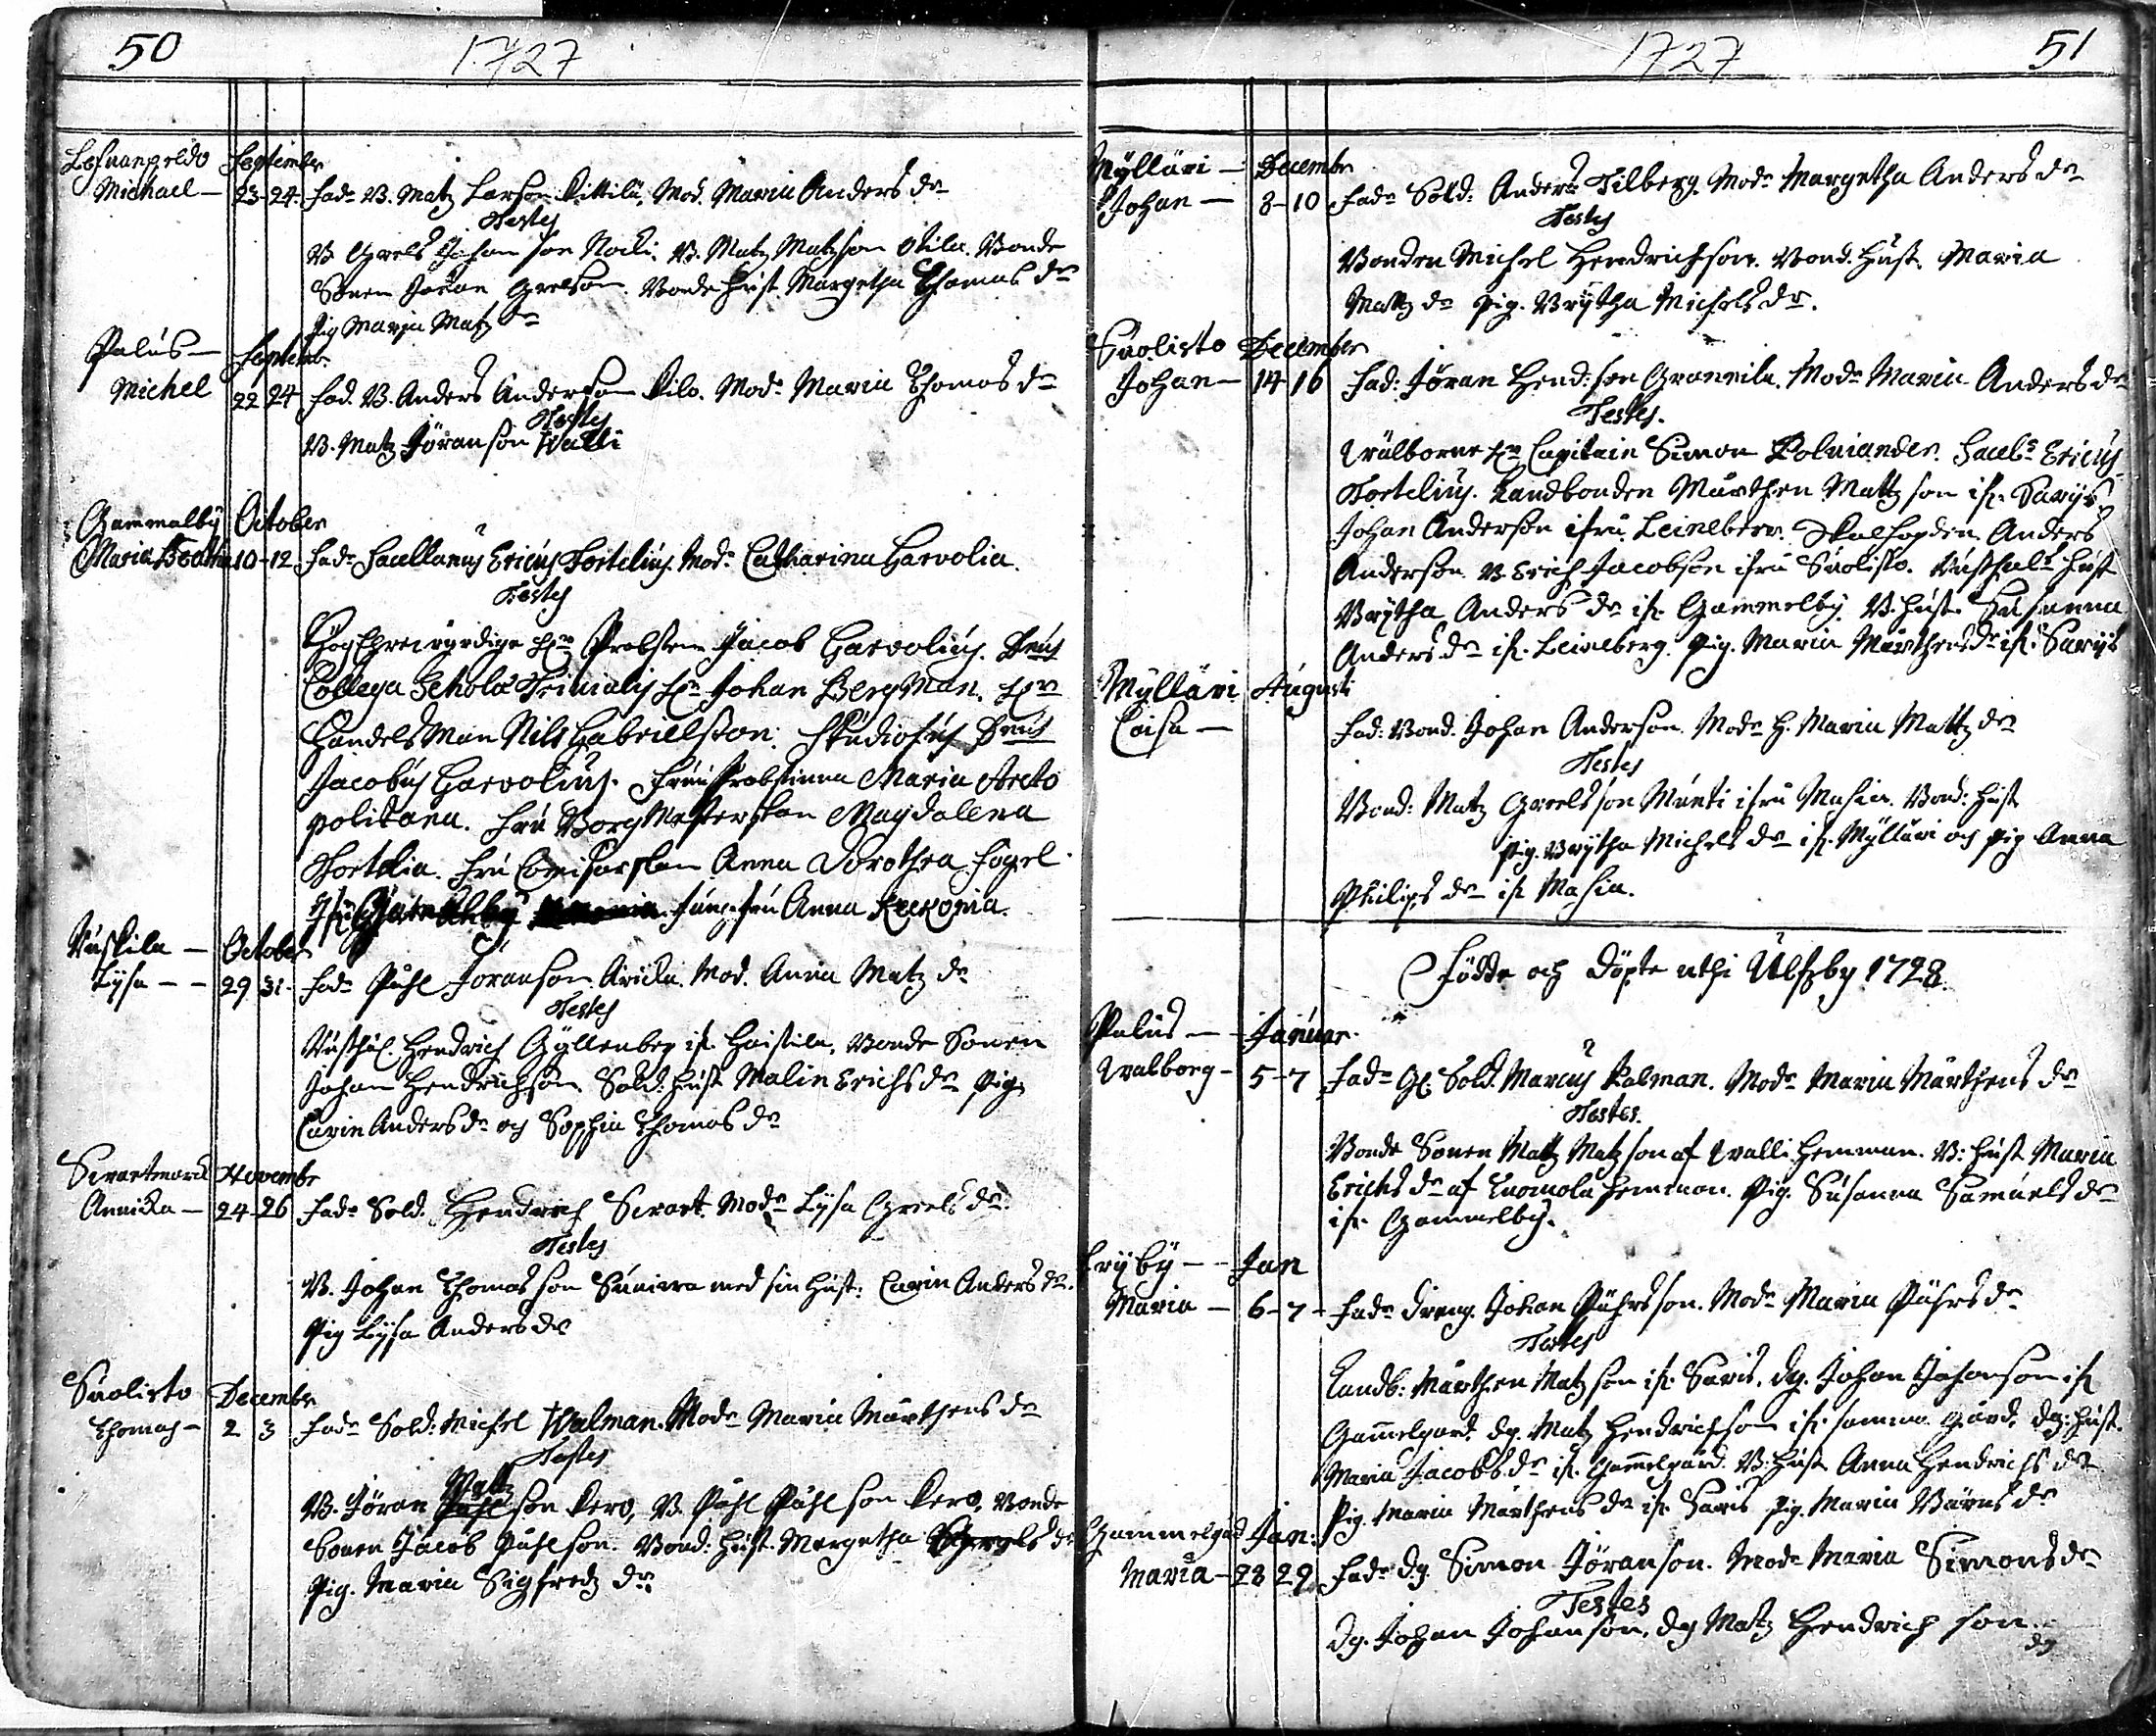 50
1727
September
Michael — 23-24. Fadr B. Matz Larson Kittilä, Mod. Maria Anders dr
Testes
B Grels Johan son Nocki. B. Matz Matzson Stila. Bonde
Sonen Johan Grelson. Bonde Hust. Margetha Thomas dr
Pig Maria Matz dr
Palus — Septemb.
Michel 22 24 Fad. B. Anders Anderson Kilo. Modr Maria Thomas dr
Testes
B. Matz Jöranson Walli
Gammalby October
Maria Beatha 10-12 Fadr Sacellanus Ericus Tortelius. Modr Catharina Harvolia.
Testes
HögEhrewyrdige Hr Probsten Jacob Harvolius. Dnus
Collega Scholæ Trivialis Hr Johan BergMan. Hr
HandelsMan Nils Gabrielsson. Studiosus Dnus
Jacobus Harvolius. Fru Probstinna Maria Arcto
politana. Fru BorgMesterskan Magdalena
Tortelia. Fru Comisarskan Anna Dorothea Fogel
Jungfru Anna Keckonia.
Kuskila — October
Lysa — — 29 31. Fadr Påhl Joranson Mod. Anna Matz dr
Testes
Rusthål. Hendrich Gyllenbeg if. Haistila, Bonde Sonen
Johan Hendrichson. Sold: Hust Malin Erichs dr Pig.
Carin Anders dr och Sophia Thomas dr
Swartmark Novembr
Annika — 24-26 Fadr Sold. Hendrich Swart. Modr Lysa Grels dr.
Testes
B. Johan Thomas son med sin Hust: Carin Anders dr.
Pig Lysa Anders dr
Suolisto Decembr
Thomas — 2 3 Fadr Sold: Michel Walman. Modr Maria Mårthens dr
Testes
Matz
B. Jöran Påhl son Kero, B. Påhl Påhl son Kero, Bonde
Sonen Jacob Påhlson. Bond: Hust. Margetha Grels dr
Pig. Maria Sigfredz dr.
1727
51
Mylläri — Decembr
Johan — 8-10 Fadr Sold: Anders Tilberg. Modr Margetha Anders dr
Testes
Bonden Michel Hendrichson. Bond. Hust. Maria
Mattz dr Pig. Brytha Michels dr.
Suolisto December
Johan — 14 16 Fad: Jöran Hend: son Granvila. Modr Maria Anders dr
Testes.
Wälborne Hr Capitain Simon Polviander. Sacels Ericus
Tortelius. Landbonden Mårthen Mattz son if. Sarijs,
Johan Anderson ifrå Leineberg. Skalfogden Anders
Anderson B. Erich Jacobson ifrå Suolisto. Rusthals Hust
Brytha Anders dr if. Gammelby. B. Hust. Susanna
Anders dr if. Leineberg. Pig. Maria Mårthens dr if. Sarijs
Mylläri Augusti
Caisa — Fad: Bond. Johan Anderson. Modr H. Maria Mattz dr
Testes
Bond: Matz Grelsson Munti ifrå Masia. Bond: Hust
Pig. Brytha Michels dr if. Mylläri och Pig Anna
Philips dr if Masia.
Födde och Döpte uthi Ulfzby 1728.
Palus — Januar.
Walborg — 5-7 Fadr Gl. Sold. Marcus Palman. Modr Maria Mårthens dr
Testes.
Bonde Sonen Mattz Matz son af Walli Hemman. B: Hust Maria
Erichs dr af Hemman. Pig. Susanna Samuels dr
if. Gammelby.
Fryby — — Jan
Maria — 6-7 — Fadr Dreng. Johan Påhrsson. Modr Maria Påhrs dr
Testes
Landb: Mårthen Matz son if. Saris. Dg. Johan Johanson if
Gamelgard. Dg. Matz Hendrichson if. samma gård, Dg: Hust.
Maria Jacobs dr if. Gamelgård. B: Hust Anna Hendrichs dr
Pig. Maria Mårthens dr if. Saris Pig. Maria dr
Gammelgård Jan:
Maria — 28 29 Fadr Dg. Simon Jöranson. Modr Maria Simons dr
Testes
Dg. Johan Johanson, Dg Matz Hendrich son.
Dg